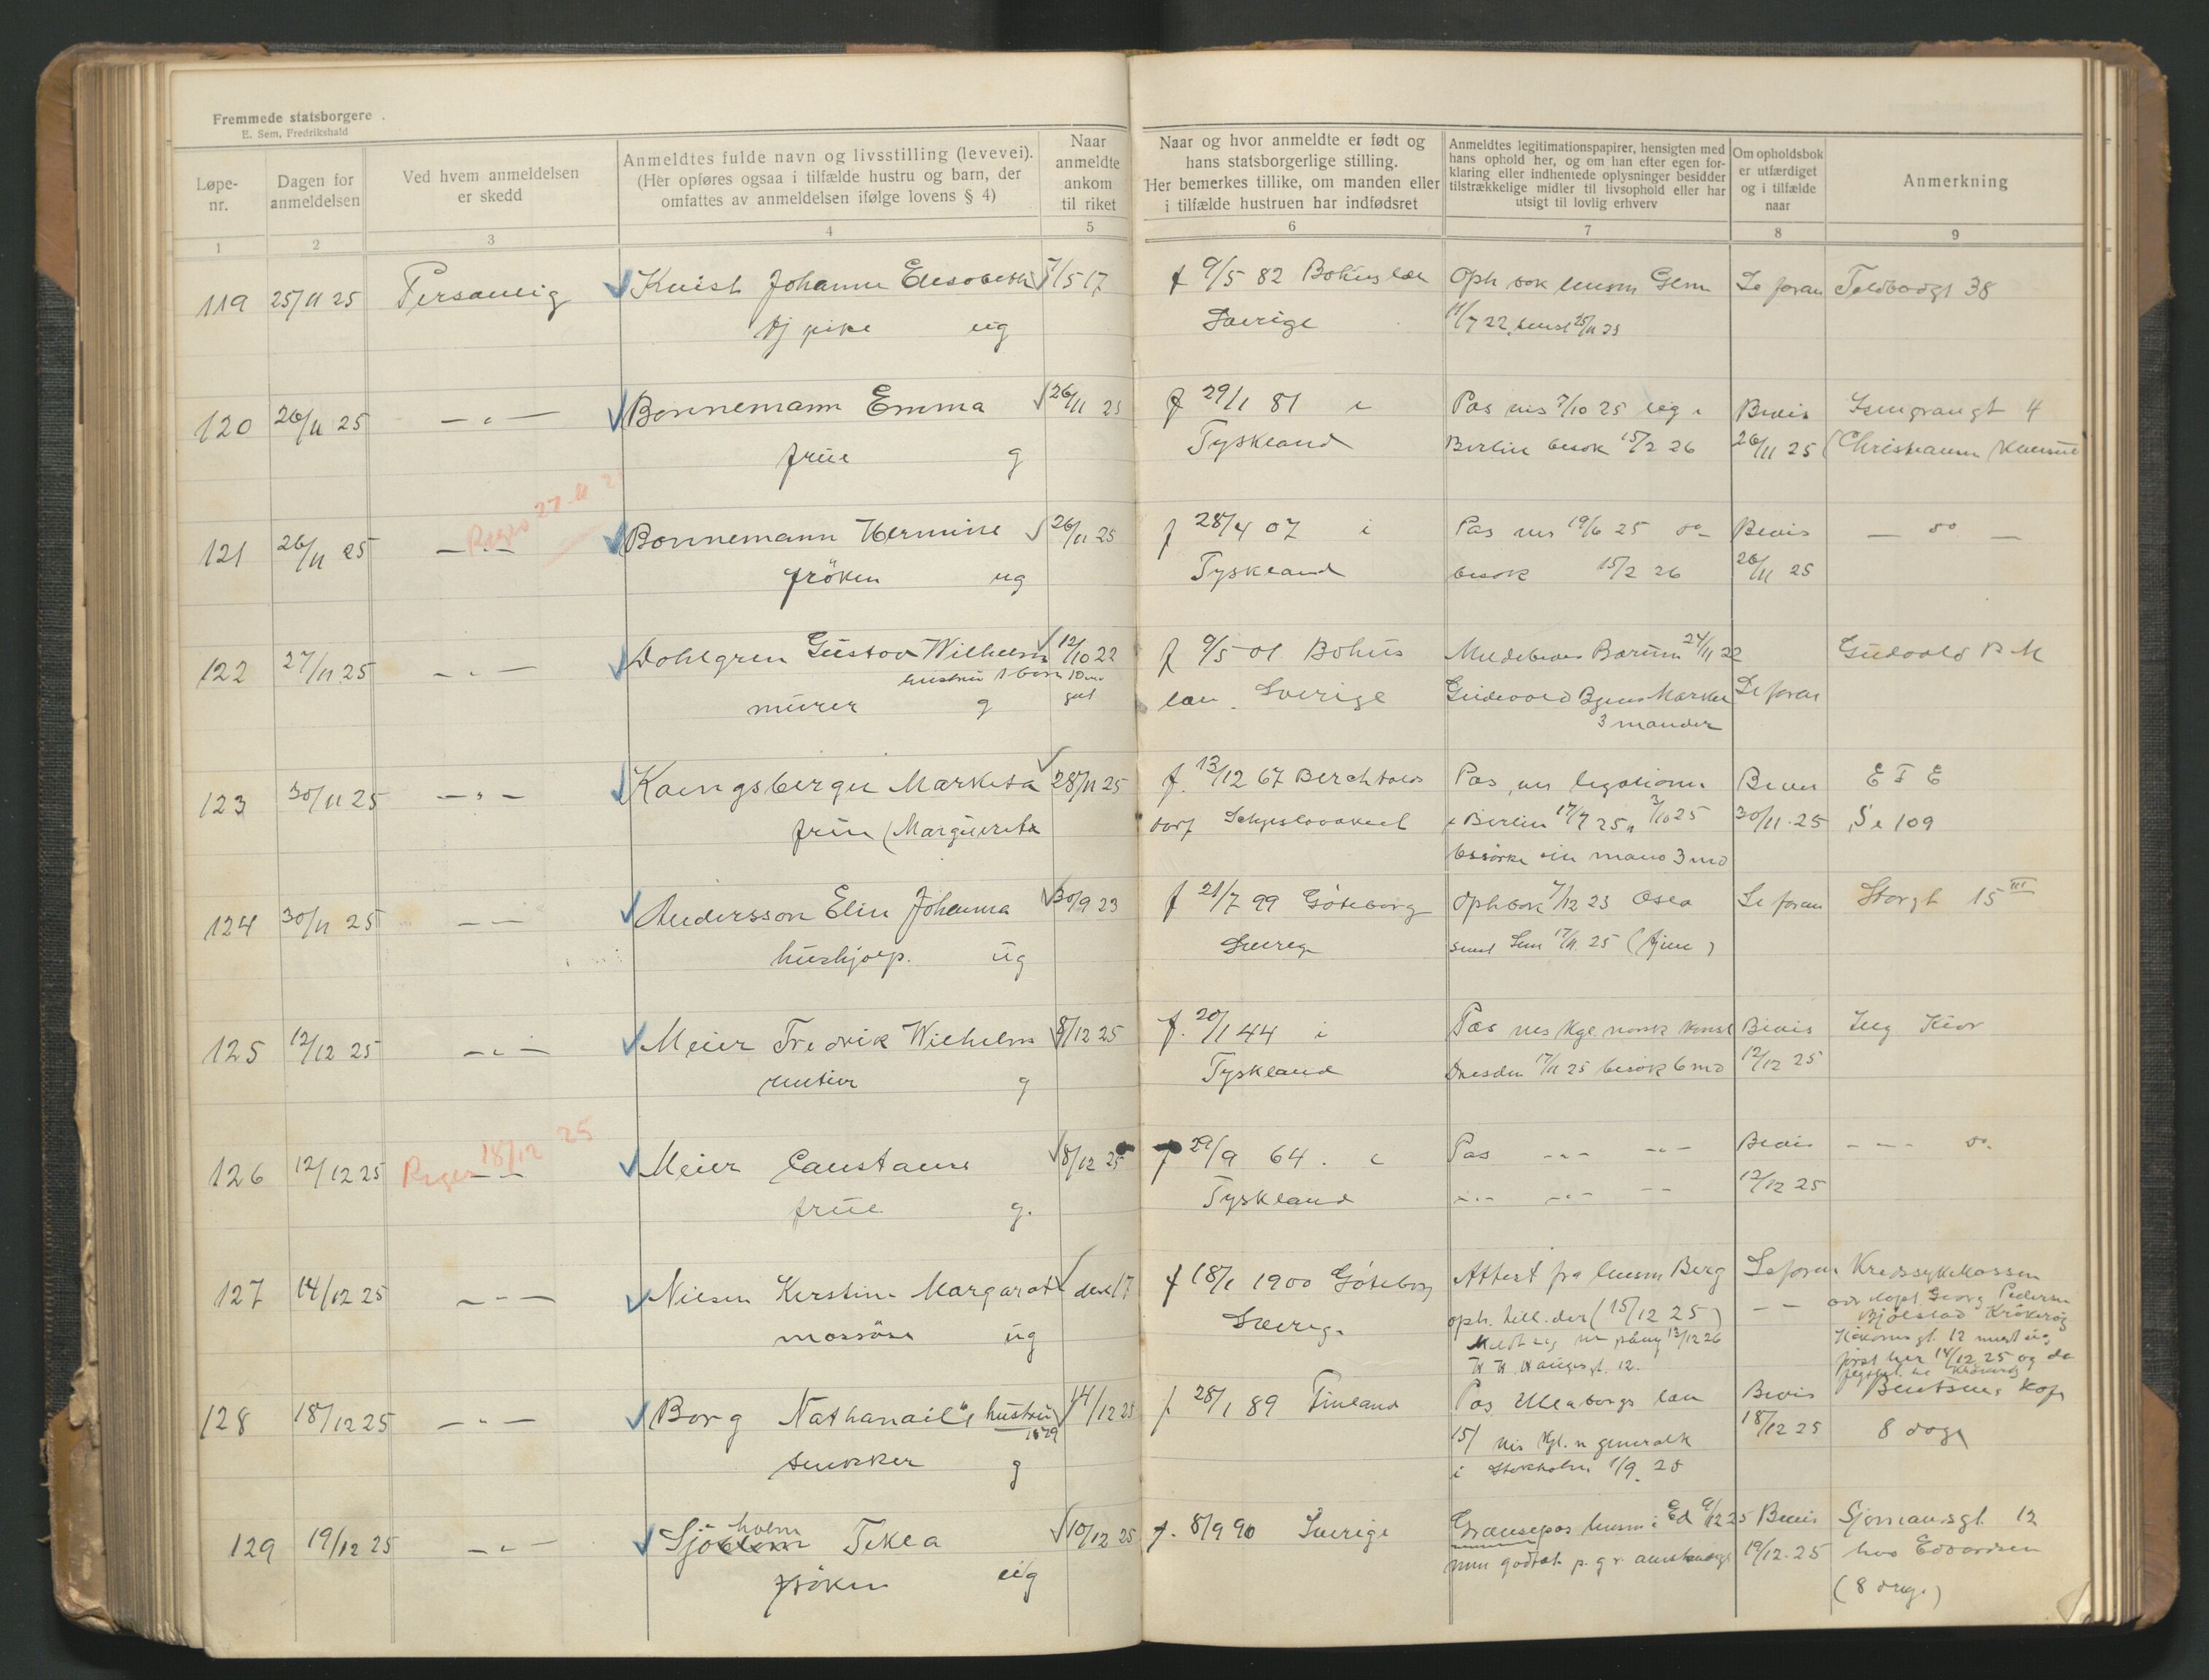 Fremmede statsborgere
E. Sem, Fredrikshald
Løpe-nr.
Dagen for anmeldelsen
Ved hvem anmeldelsen er skedd
Anmeldtes fulde navn og livsstilling (levevei).
(Her opføres ogsaa i tilfælde hustru og barn, der
omfattes av anmeldelsen ifølge lovens § 4)
Naar anmeldte ankom til riket
Naar og hvor anmeldte er født og
hans statsborgerlige stilling.
Her bemerkes tillike, om manden eller
i tilfælde hustruen har indfødsret
Anmeldtes legitimationspapirer, hensigten med
hans ophold her, og om han efter egen for-
klaring eller indhentede oplysninger besidder
tilstrækkelige midler til livsophold eller har
utsigt til lovlig erhverv
Om opholdsbok
er utfærdiget
og i tilfælde
naar
Anmerkning
1 2 3 4 5 6 7 8 9
119 25/11 25 Personlig Johanne Elisabeth 7/5 17 f 9/5 82 Bohuslen Oph bok lensm Se foran Toldbodgt 38
tj pike ug Sverige 11/7 22
120 26/11 25 — " — Bonnemann Emma 26/11 25 f 29/1 81 i Pas vis 7/10 25 leg i Bevis 4
frue g Tyskland Berlin besøk 15/2 26 26/11 25
27-11
121 26/11 25 — " — Bonnemann Hermine 26/11 25 f 28/4 07 i Pas vis 19/6 25 do Bevis — do —
fröken ug Tyskland besøk 15/2 26 26/11 25
122 27/11 25 — " — Dahlgren Gustav Wilhelm 12/10 22 f 9/5 01 Bohus Meldebevis Bærum 24/11 22 Gudvold B M
hustru 1 barn 10 mn gml
murer g len. Sverige Se foran
3 maaneder
123 30/11 25 — " — Koenigsberger Marketa 28/11 25 f. 13/12 67 Berchtolds Pas vis legationen Bevis E F E
frue (Marguerita dorf i Berlin 17/7 25 30/11 25 109
besøke sin mand 3 md
124 30/11 25 — " — Andersson Elin Johanna 30/9 23 f 21/7 99 Göteborg Oph bok 7/12 23 Oslo Se foran Storgt 15 III
hushjælp. ug Sverige 17/11 25 (tjene)
125 12/12 25 — " — Meier Fredrik Wilhelm 8/12 25 f. 20/1 44 i Pas vis Kgl norsk konsl Bevis Ing Kiær
rentier g Tyskland Dresden 17/11 25 besøk 6 md 12/12 25
18/12 25
126 12/12 25 — " — Meier Constanse 8/12 25 f 29/9 64. i Pas — " — — " — Bevis — " — do
frue g. Tyskland — " — — " — — " — 12/12 25
127 14/12 25 — " — Nilsen Kerstin Margarete des 17 f 18/1 1900 Göteborg Attest fra lensm Berg Se foran Kredssykekassen
massöse ug Sverige oph. till. der (15/12 25) — —
Georg Pedersen
Bjölstad Kråkerøy
12
H H Haugesgt. 12.
først her 14/12 25 og da
128 18/12 25 — " — Borg Nathanael, hustru 14/12 25 f 28/1 89 Finland Pas Uleaborgs len Bevis Bentsens Kafe
snekker g vis Kgl. n generalk 18/12 25 8 dage
i Stokholm 1/9 25
129 19/12 25 — " — Sjöholm Tekla 10/12 25 f. 8/9 90 Sverige Grænsepas lensm i Ed 9/12 25 Bevis Sjömandsgt. 12
fröken ug 19/12 25 hos Edvardsen
(8 dage)